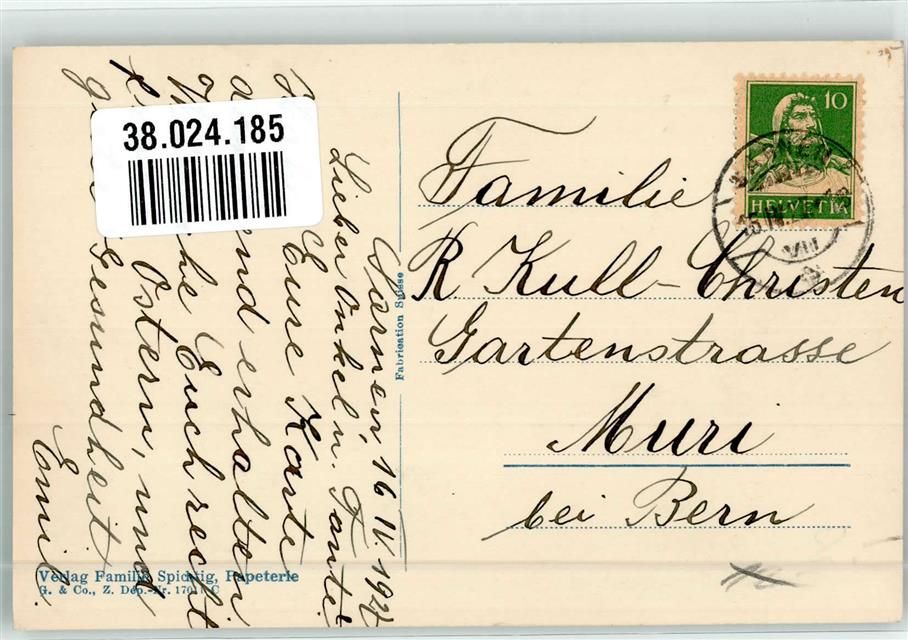 Sarnen 16 IV. 192
Lieber Onkel u. Tante
Eure Karte
erhalten
Euch recht
Ostern, und
Gesundheit
Emil.
Familie
R Kull-Christen
Gartenstrasse
Muri
bei Bern
10
HELVETIA
38.024.185
Fabrication Suisse
Verlag Familie Spichtig, Papeterie
G. & Co., Z. Dép.-Nr.